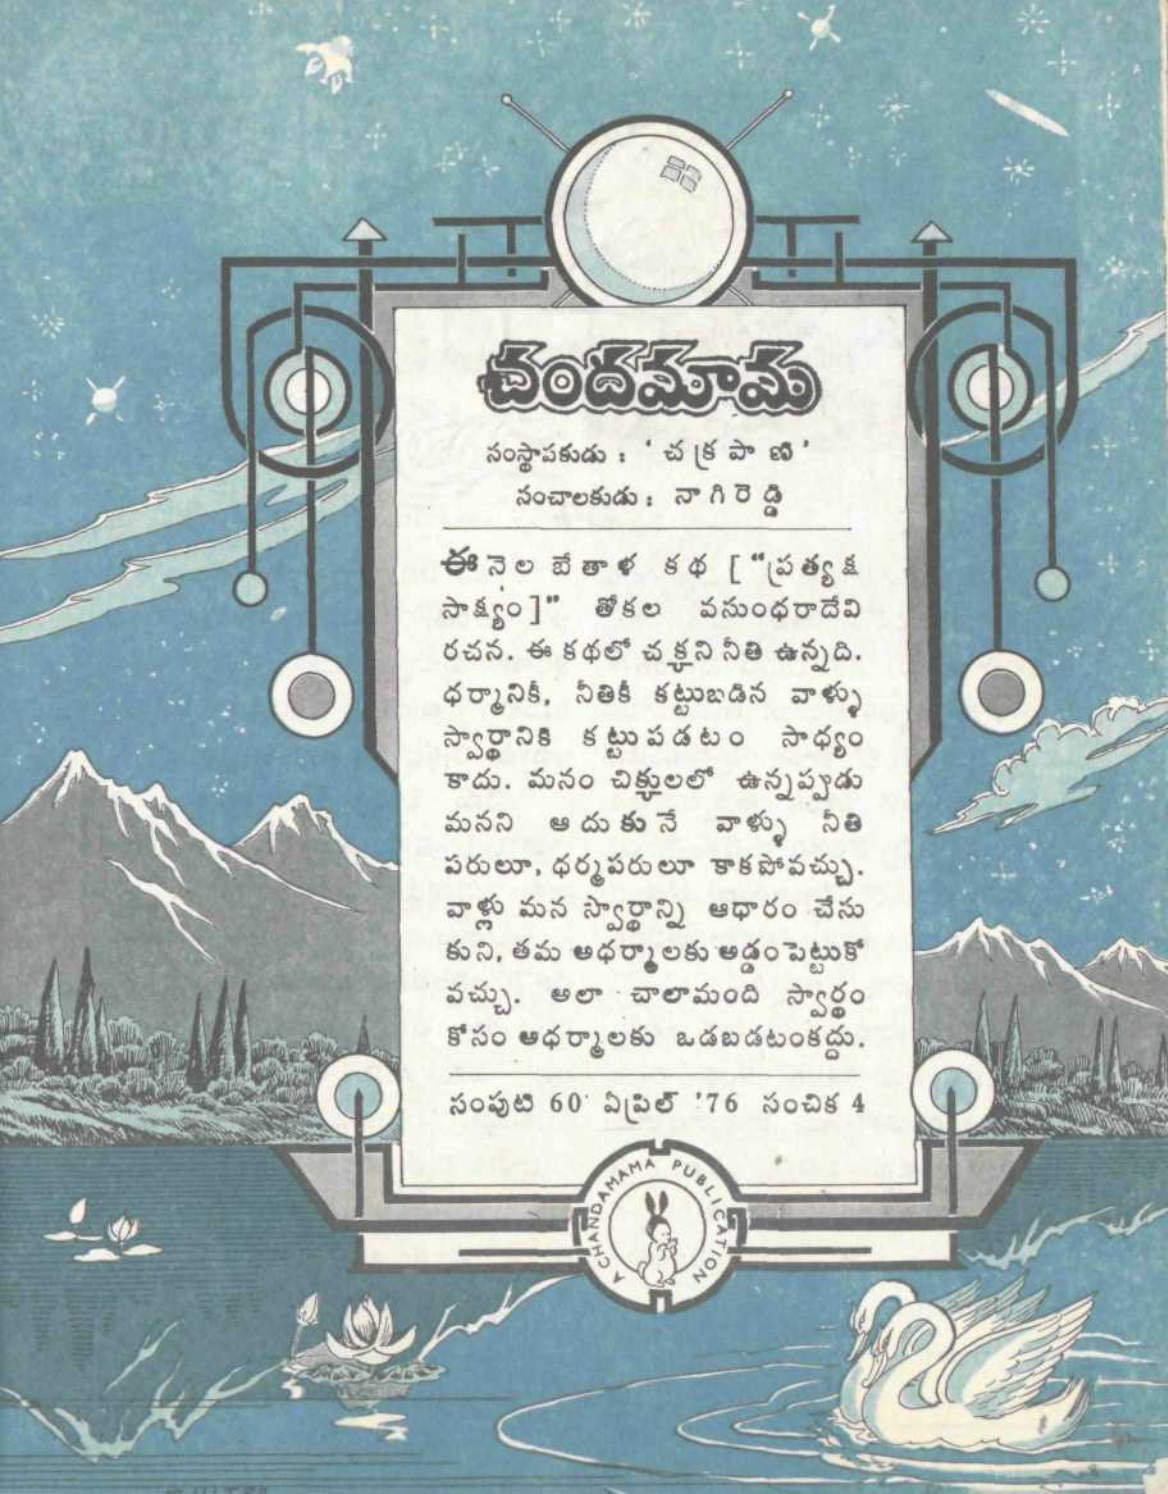 చందమామ
సంస్థాపకుడు : ' చ క్ర పా ణి '
సంచాలకుడు : నా గి రె డ్డి
ఈ నెల బేతాళ కథ [ "ప్రత్యక్ష
సాక్ష్యం]" తోకల వసుంధరాదేవి
రచన. ఈ కథలో చక్కని నీతి ఉన్నది.
ధర్మానికీ, నీతికీ కట్టుబడిన వాళ్ళు
స్వార్థానికి కట్టుపడటం సాధ్యం
కాదు. మనం చిక్కులలో ఉన్నప్పుడు
మనని ఆదుకునే వాళ్ళు నీతి
పరులూ, ధర్మపరులూ కాకపోవచ్చు.
వాళ్లు మన స్వార్థాన్ని ఆధారం చేసు
కుని, తమ అధర్మాలకు అడ్డంపెట్టుకో
వచ్చు. అలా చాలామంది స్వార్థం
కోసం అధర్మాలకు ఒడబడటంకద్దు.
సంపుటి 60 ఏప్రిల్ '76 సంచిక 4
A CHANDAMAMA PUBLICATION